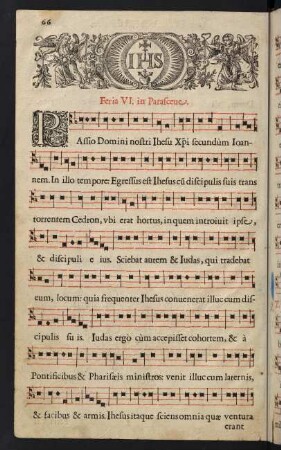 66
IHS
Feria VI. in Parasceue.
PAssio Domini nostri Ihesu Xpi secundùm Ioan-
nem. In illo tempore: Egressus est Ihesus cũ discipulis suis trans
torrentem Cedron, vbi erat hortus, in quem introiuit ipse,
& discipuli e ius. Sciebat autem & Iudas, qui tradebat
eum, locum: quia frequenter Ihesus conuenerat illuc cum dis-
cipulis su is. Iudas ergo cùm accepisset cohortem, & à
Pontificibus & Phariseis ministros: venit illuc cum laternis,
& facibus & armis. Ihesus itaque sciens omnia quæ ventura
erant